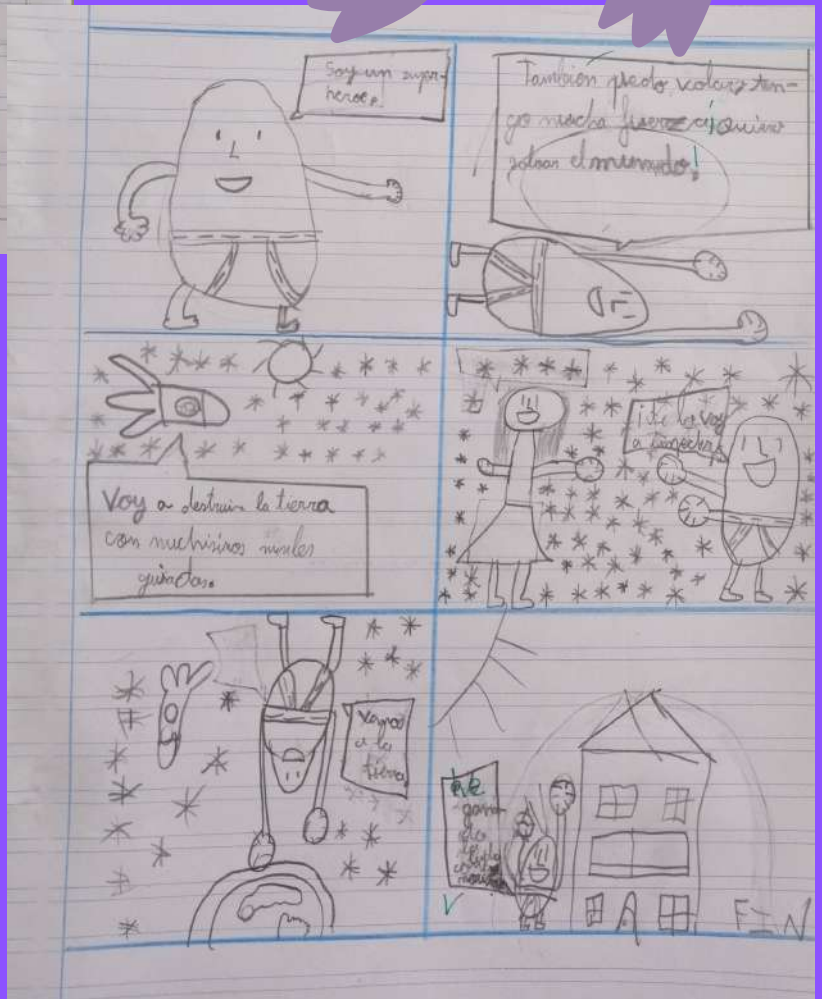 Soy un super-
heroe.
También puedo volar, ten-
go mucha fuerza ¡Quiero
salvar el mumundo!
Voy a destruir la tierra
con muchisiros misiles
guiados.
¡Te la voy
a
Vamos
a la
tierra
he
gana-
do
FIN